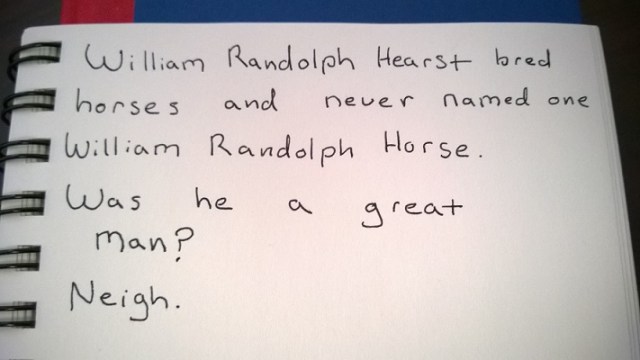 William Randolph Hearst bred
horses and never named one
William Randolph Horse.
Was he a great
man?
Neigh.